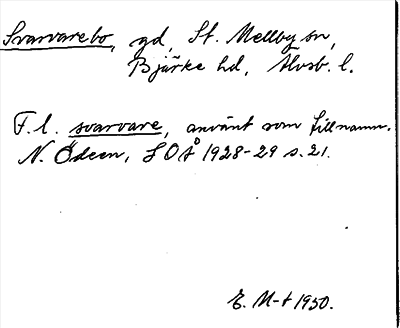 Svarvarebo, gd, St. Mellby sn,
Bjärke hd, Älvsb. l.
F. l. svarvare, använt som tillnamn.
N. Ödeen, SOÅ 1928-29 s. 21.
E. M-t 1950.